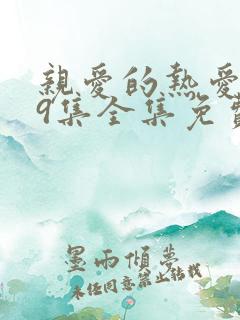 親愛的熱愛
9集全集免費
墨雨傾夢
未经同意禁止转载